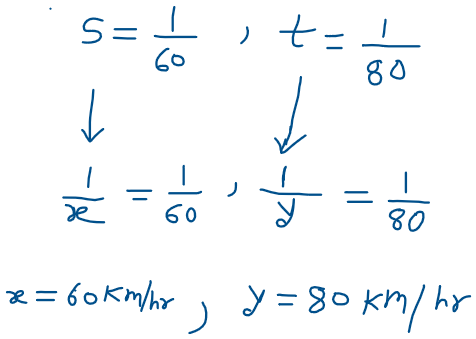 S = 1/60 , t = 1/80
↓ ↓
1/x = 1/60 , 1/y = 1/80
x = 60 Km/hr , y = 80 KM/hr